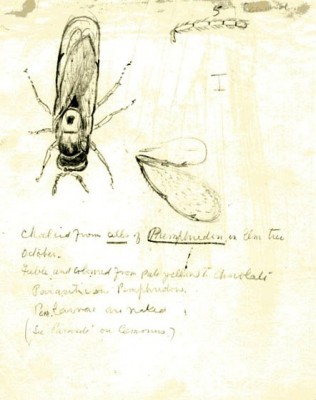 5
Chalcid from cells of Pemphredon in Elm tree
October.
and coloured from pale yellow to chocolate
Parasitic on Pemphredon.
are naked
(See Parasite on Cemonus?)